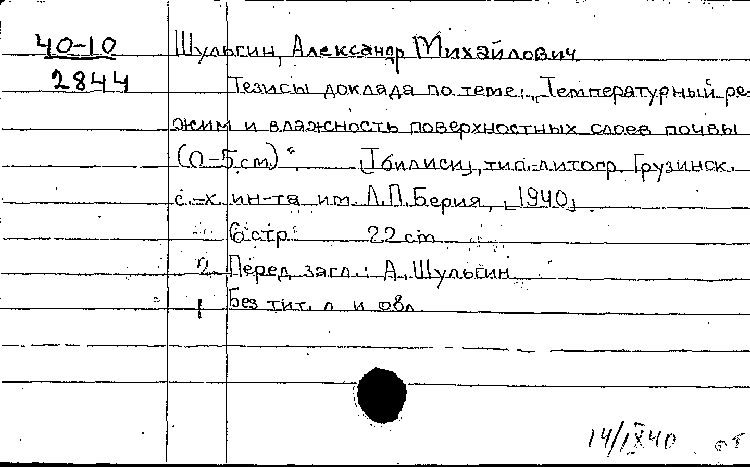 40-10 Шульгин, Александр Михайлович
2844 Тезисы доклада по теме: „Температурный ре-
жим и влажность поверхностных слоев почвы
(0-5 см)“ [Тбилиси], тип.-литогр. Грузинск.
с.-х. ин-та им. Л.П. Берия, [1940]
6 стр. 22 cm
2 Перед загл.: А. Шульгин
1 Без тит. л. и обл.
14/IX 40